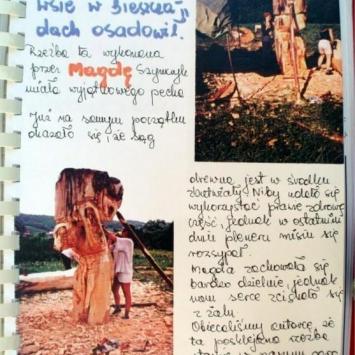 wsie w Bieszcza-
dach osadowił.
Rzeźba ta wykonana
przez Magdę Szymczyk
miała wyjątkowego pecha
Już na samym początku
okazało się, że sąg
drewna jest w środku
zbutwiały. Niby udało się
wykorzystać prawie zdrową
część, jednak w ostatnim
dniu pleneru misiu się
rozsypał.
Magda zachowała się
bardzo dzielnie, jednak
nam serce ścisnęło się
z żalu.
Obiecaliśmy autorce, że
ta posklejana rzeźba